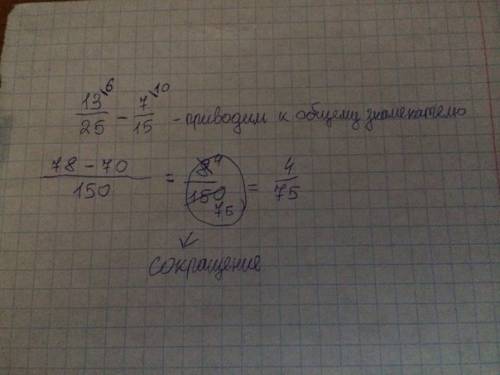 13\6/25 − 7\10/15 - приводим к общему знаменателю
78 − 70/150 = 8 4/150 75 = 4/75
сокращение